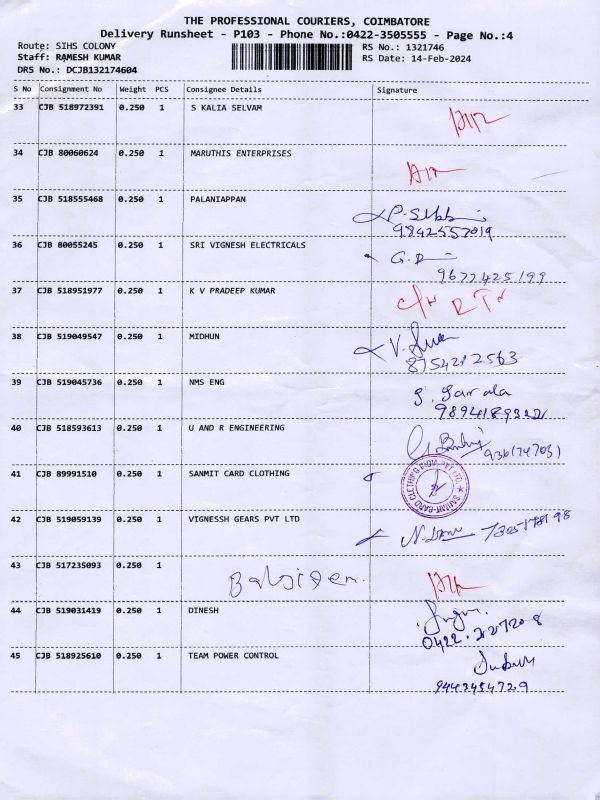 THE PROFESSIONAL COURIERS, COIMBATORE
Delivery Runsheet - P103 - Phone No.:0422-3505555 - Page No.:4
Route: SIHS COLONY RS No.: 1321746
Staff: RAMESH KUMAR RS Date: 14-Feb-2024
DRS No.: DCJB132174604
S No Consignment No Weight PCS Consignee Details Signature
33 CJB 518972391 0.250 1 S KALIA SELVAM
34 CJB 80060624 0.250 1 MARUTHIS ENTERPRISES
35 CJB 518555468 0.250 1 PALANIAPPAN
9842557019
36 CJB 80055245 0.250 1 SRI VIGNESH ELECTRICALS
9677425199
37 CJB 518951977 0.250 1 K V PRADEEP KUMAR
38 CJB 519049547 0.250 1 MIDHUN
8754212563
39 CJB 519045736 0.250 1 NMS ENG
40 CJB 518593613 0.250 1 U AND R ENGINEERING
41 CJB 89991510 0.250 1 SANMIT CARD CLOTHING
42 CJB 519059139 0.250 1 VIGNESSH GEARS PVT LTD
43 CJB 517235093 0.250 1
44 CJB 519031419 0.250 1 DINESH
45 CJB 518925610 0.250 1 TEAM POWER CONTROL
9443454729